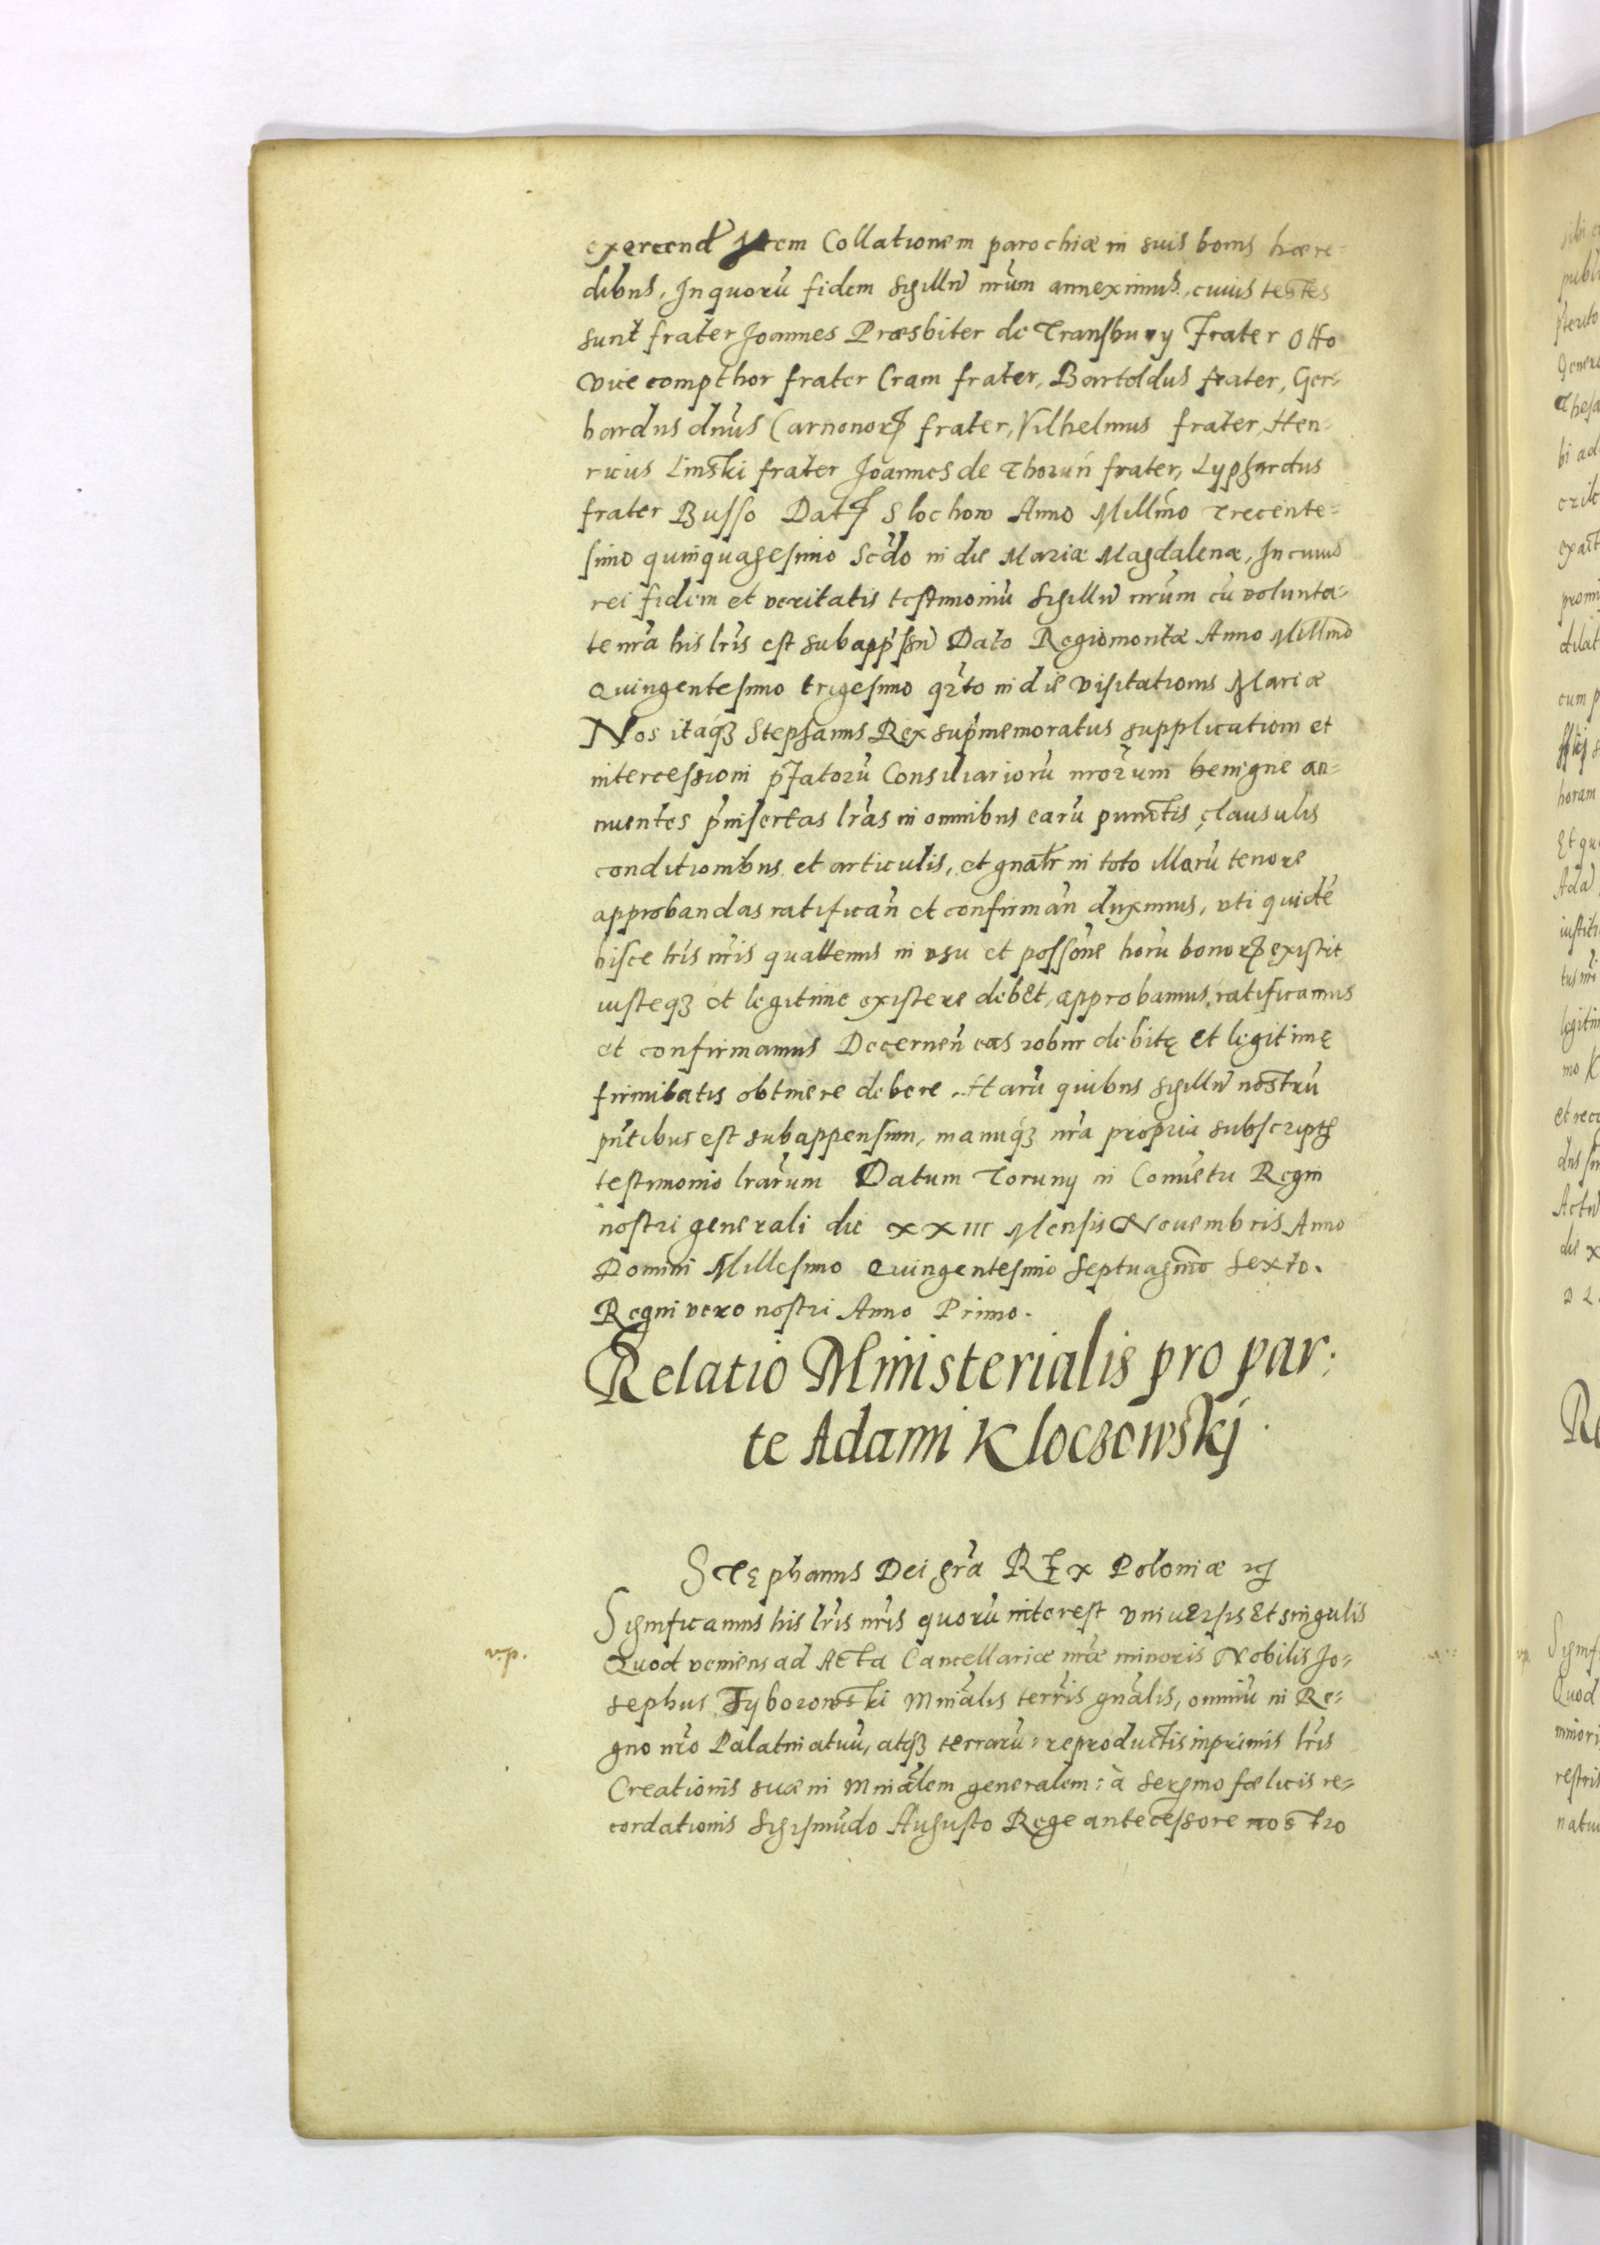 exercend Item Collationem parochiæ in suis bonis hære-
dibus, In quorū fidem sigillū nrūm anneximus, cuius testes
sunt frater Joannes Præsbiter de Transbury Frater Otto
vice compthor frater Cram frater, Bartoldus frater, Ger-
hardus dnūs Carnonorꝝ frater, Vilhelmus frater, Hen-
ricus Linski frater Joannes de Thoruń frater, Lyphardus
frater Busso Datꝝ Slochow Anno Millmō trecente-
simo quinquagesimo Scdo in die Mariæ Magdalenæ, In cuius
rei fidem et veritatis testimoniū sigillū nrūm cū volunta-
te nrā his lrīs est subappēsū Dato Regiomontæ Anno Millmō
Quingentesimo trigesimo qrto in die visitationis Mariæ
Nos itaqꝫ Stephanus Rex supmemoratus supplicationi et
intercessioni pfatorū Consiliariorū nrōrum benigne an-
nuentes pinsertas lrās in omnibus earū punctis clausulis
conditionibus et articulis, et gnalr in toto illarū tenore
approbandas ratifican et confirman duximus, vti quidē
hisce lrīs nrīs quatenus in vsu et possōne horū bonorꝝ existit
iusteqꝫ et legitime existere debet, approbamus, ratificamus
et confirmamus Decernen eas robur debitę et legitimę
firmitatis obtinere debere. Harū quibus sigillū nostrū
pntibus est subappensum, manuqꝫ nrā propria subscriptꝫ
testimonio lrārum Datum Toruny in Conuētu Regni
nostri generali die XXIII Mensis Nouembris Anno
Domini Millesimo Quingentesimo Septuagmō Sexto.
Regni vero nostri Anno Primo.
Relatio Ministerialis pro par-
te Adami Kloczowskj
Stephanus Dei grā Rex Poloniæ
Significamus his lrīs nrīs quorū interest vniuersis Et singulis
Quod veniens ad Acta Cancellariæ nrǣ minoris Nobilis Jo-
sephus Tyborowski Mniālis terrīs gnālis, omniū in Re-
gno nrō Palatinatuū, atqꝫ terrarū: reproductis inprimis lrīs
Creationis suæ in Mniālem generalem: à Serēmo fœlicis re-
cordationis Sigismūdo Augusto Rege antecessore nostro